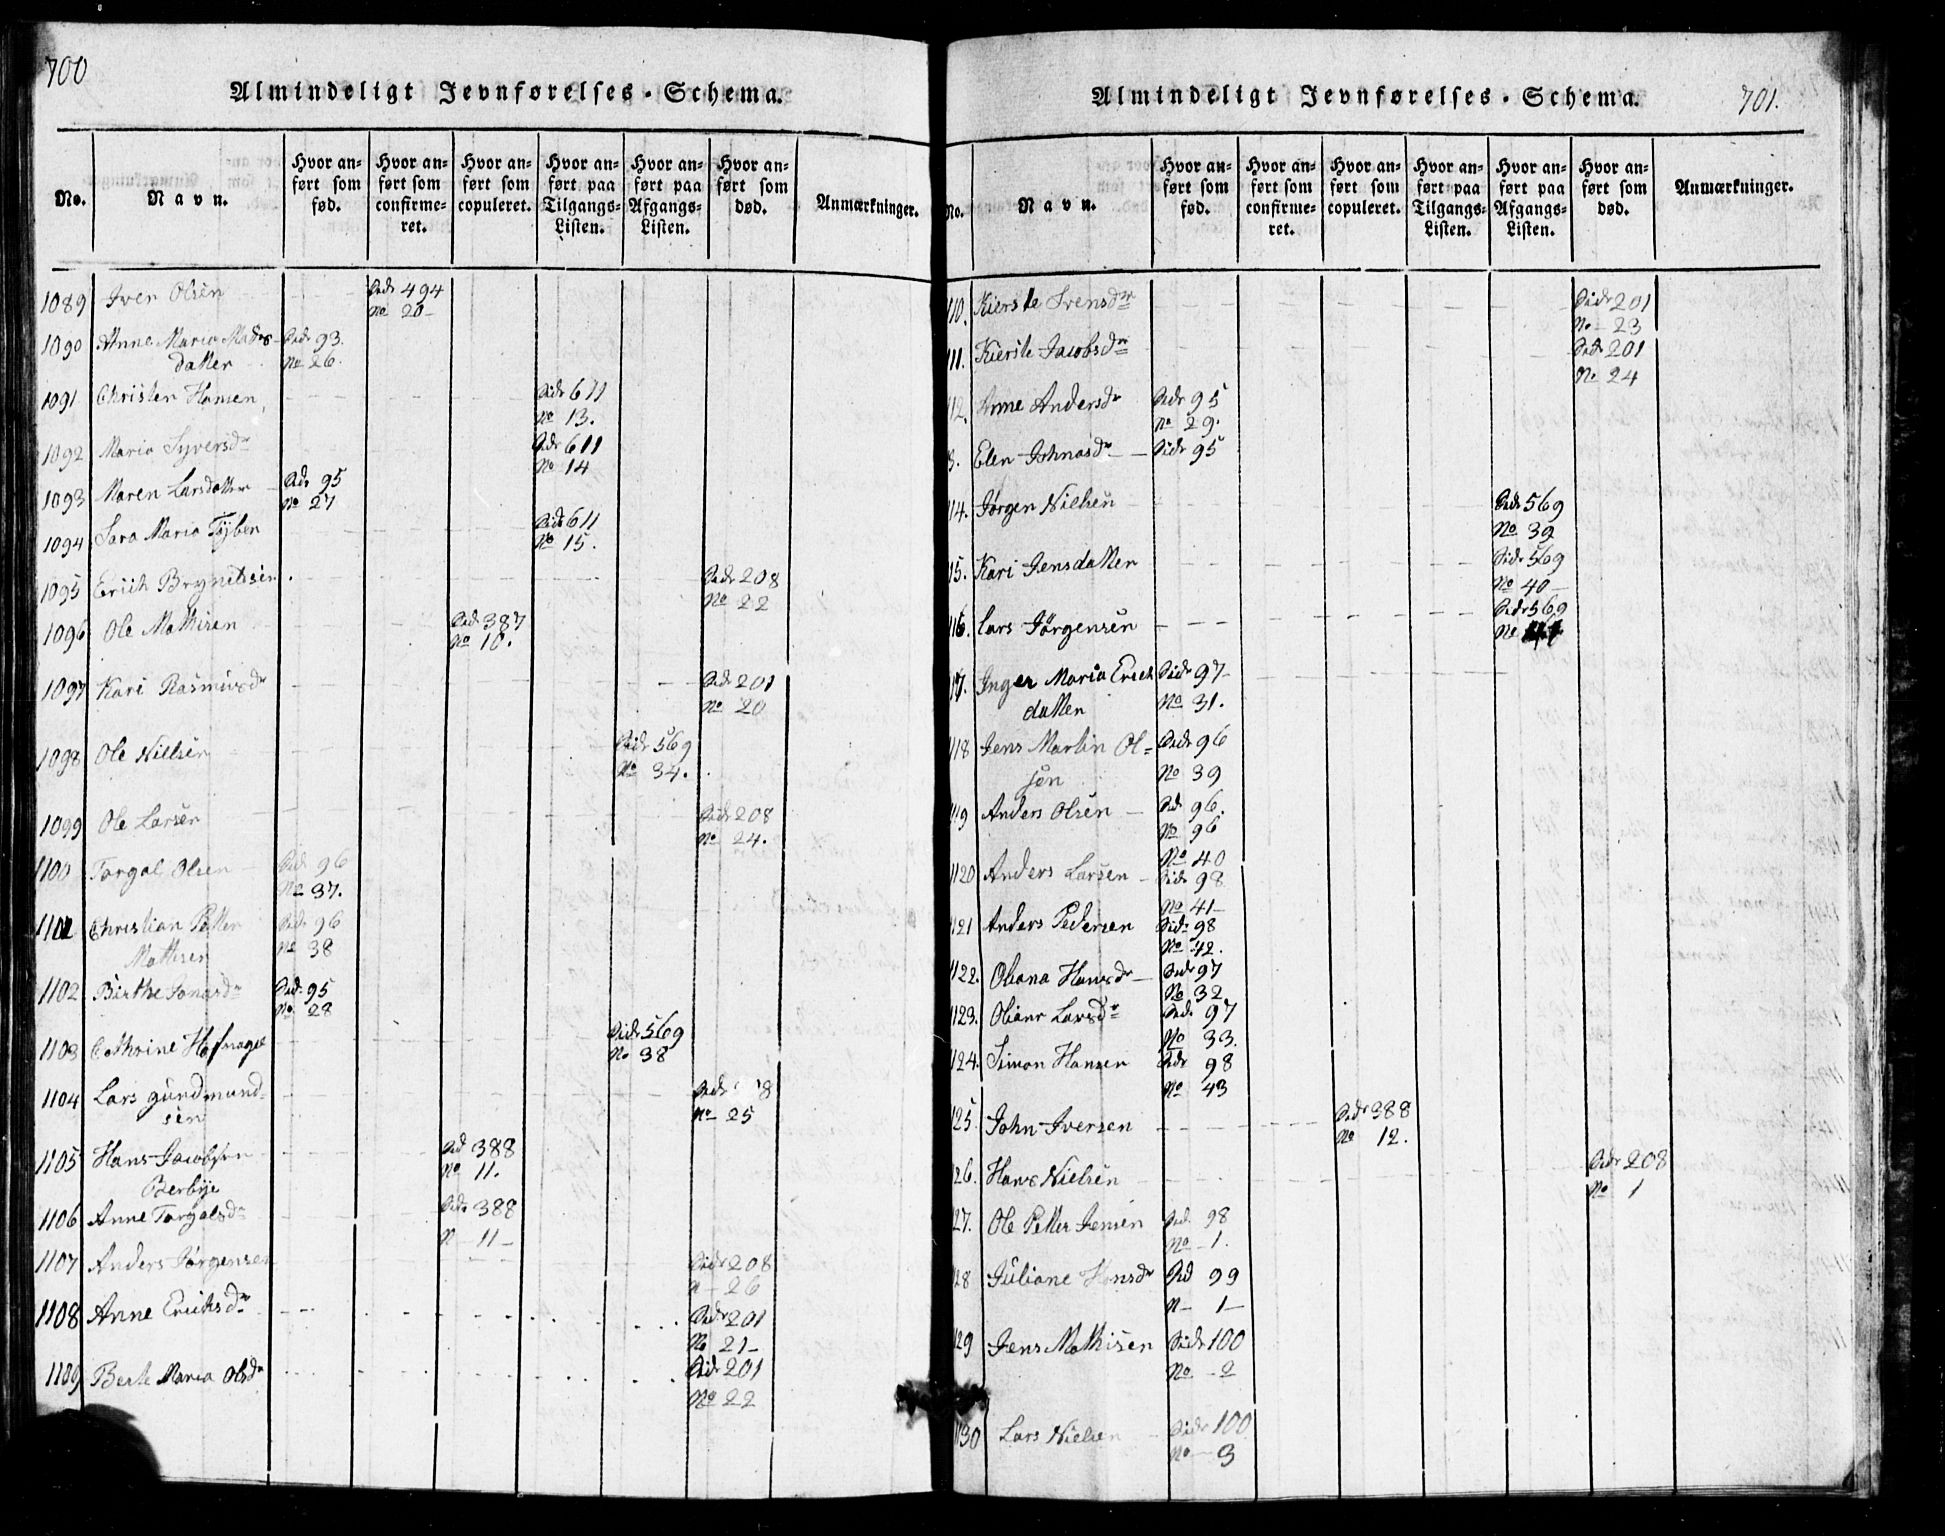 700
Almindeligt Jevnførelses-Schema.
No.
Navn.
Hvor an-
ført som
fød.
Hvor an-
ført som
confirme-
ret.
Hvor an-
ført som
copuleret.
Hvor an-
ført paa
Tilgangs-
Listen.
Hvor an-
ført paa
Afgangs-
Listen.
Hvor an-
ført som
død.
Anmærkninger.
1089 Iver Olsen Side 494
No 20
1090 Anne Maria Mads- Side 93.
datter No 26.
1091 Christen Hansen Side 611
No 13.
1092 Maria Syversdr Side 611
No 14
1093 Maren Larsdatter Side 95
No 27
1094 Sara Maria Tyben Side 611
No 15.
1095 Erich Brynelsen Side 208
No 22
1096 Ole Mathisen Side 387
No 10.
1097 Kari Rasmusdr Side 201
No 20
1098 Ole Nielsen Side 569
No 34.
1099 Ole Larsen Side 208
No 24.
1100 Torgal Olsen Side 96
No 37.
1101 Christian Petter Side 96
Mathisen No 38
1102 Birthe Jonasdr Side 95
No 28
1103 Cathrine Hofnagel Side 569
No 38
1104 Lars Gundmund- Side 208
sen No 25
1105 Hans Jacobsen Sid 388
Berbye No 11.
1106 Anne Torgalsdr Side 388
N 11
1107 Anders Jørgensen Side 208
N 26
1108 Anne Erichsdr Side 201
No 21
1109 Berte Maria Olsdr Side 201
No 22
Almindeligt Jevnførelses-Schema.
701.
No.
Navn.
Hvor an-
ført som
fød.
Hvor an-
ført som
confirme-
ret.
Hvor an-
ført som
copuleret.
Hvor an-
ført paa
Tilgangs-
Listen.
Hvor an-
ført paa
Afgangs-
Listen.
Hvor an-
ført som
død.
Anmærkninger.
110. Kierste Svensdr Side 201
No 23
111. Kierste Jacobsdr Side 201
No 24
12. Anne Andersdr Side 95
No 29.
3. Elen Johnasdr Side 95
114. Jørgen Nielsen Side 569
No 39
15. Kari Jensdatter Side 569
No 40
116. Lars Jørgensen Side 569
No 41
117. Inger Maria Erich Side 97
datter No 31.
118 Jens Martin Ol- Side 96
sen No 39
119 Anders Olsen Side 96.
No 96
No 40
1120 Anders Larsen Side 98
No 41
1121 Anders Pedersen Side 98
No 42.
1122. Oliana Hansdr Side 97
No 32
1123. Oliane Larsdr Side 97
No 33.
1124. Simon Hansen Side 98
No 43
125. John Iversen Side 388
No 12.
26. Hans Nielsen Side 208
No 1
27. Ole Petter Jensen Side 98
No 1.
28 Juliane Hansdr Sid 99
N 1
129 Jens Mathisen Side 100
No 2
1130 Lars Nielsen Side 100
No 3